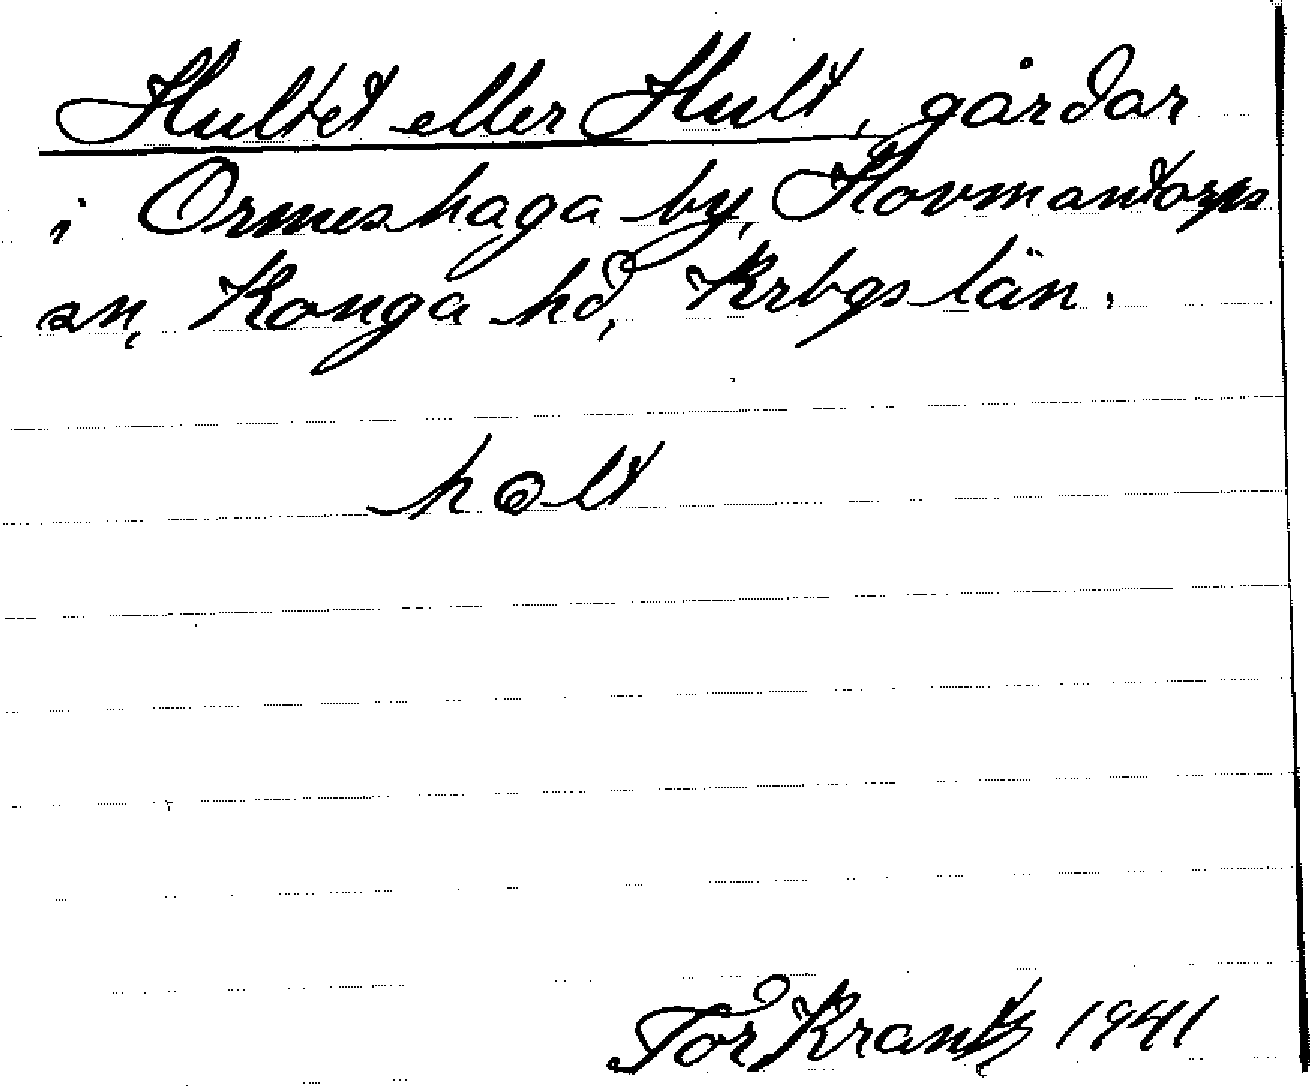 Hultet eller Hult, gårdar
i Ormeshaga by, Hovmantorps
sn, Konga hd, Krbgs län.
holt
Tor Krantz 1941